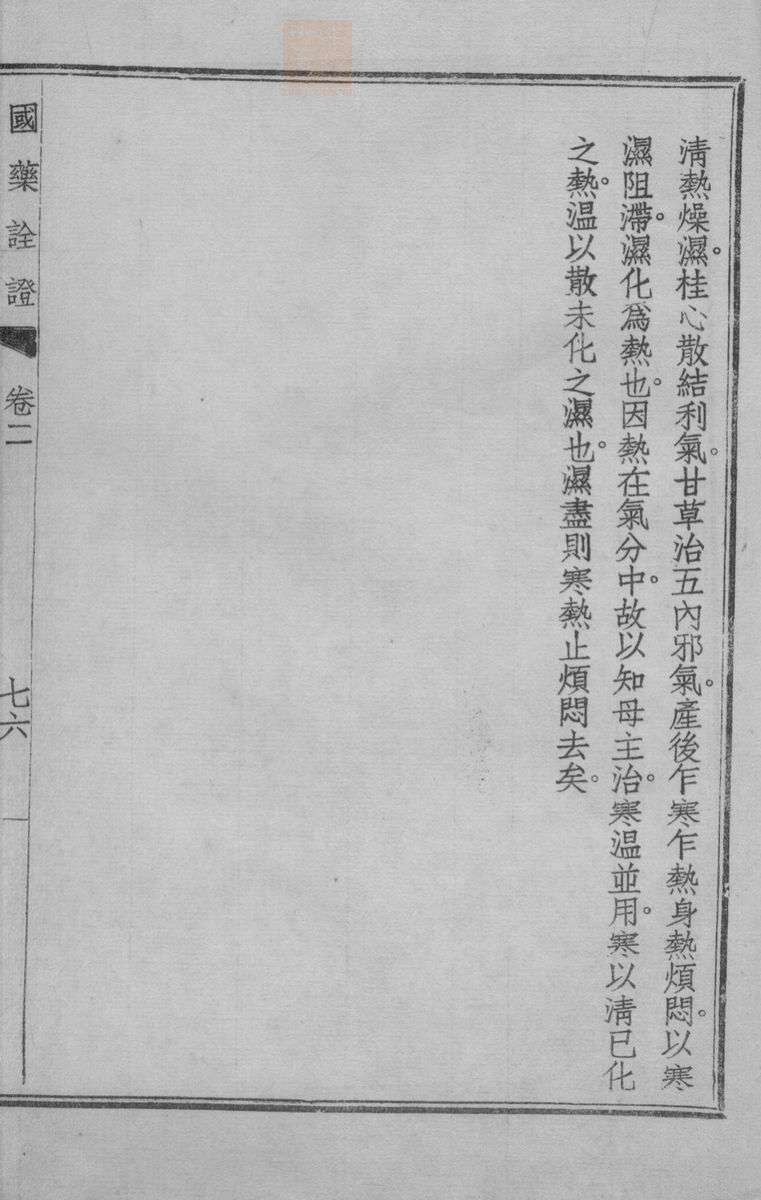 清熱燥濕。桂心散結利氣。甘草治五內邪氣。產後乍寒乍熱身熱煩悶。以寒
濕阻滯。濕化爲熱也。因熱在氣分中。故以知母主治。寒温並用。寒以清已化
之熱。温以散未化之濕也。濕盡則寒熱止煩悶去矣。
國藥詮證
卷二
七六